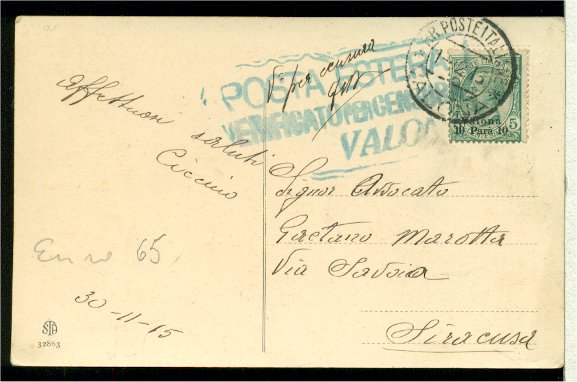 Affettuosi saluti
Ciccino
Euro 65
30-11-15
STA
32863
POSTA ESTERA
VERIFICATO PER CENSURA
VALONA
V. per censura
POSTE ITAL
Valona
10 Para 10
5
Signor Avvocato
Gaetano Marotta
Via Savoia
Siracusa